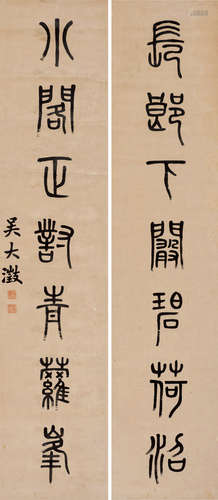 長郎下闞碧荷沼
小閣正對青蘿峯
吳大澂